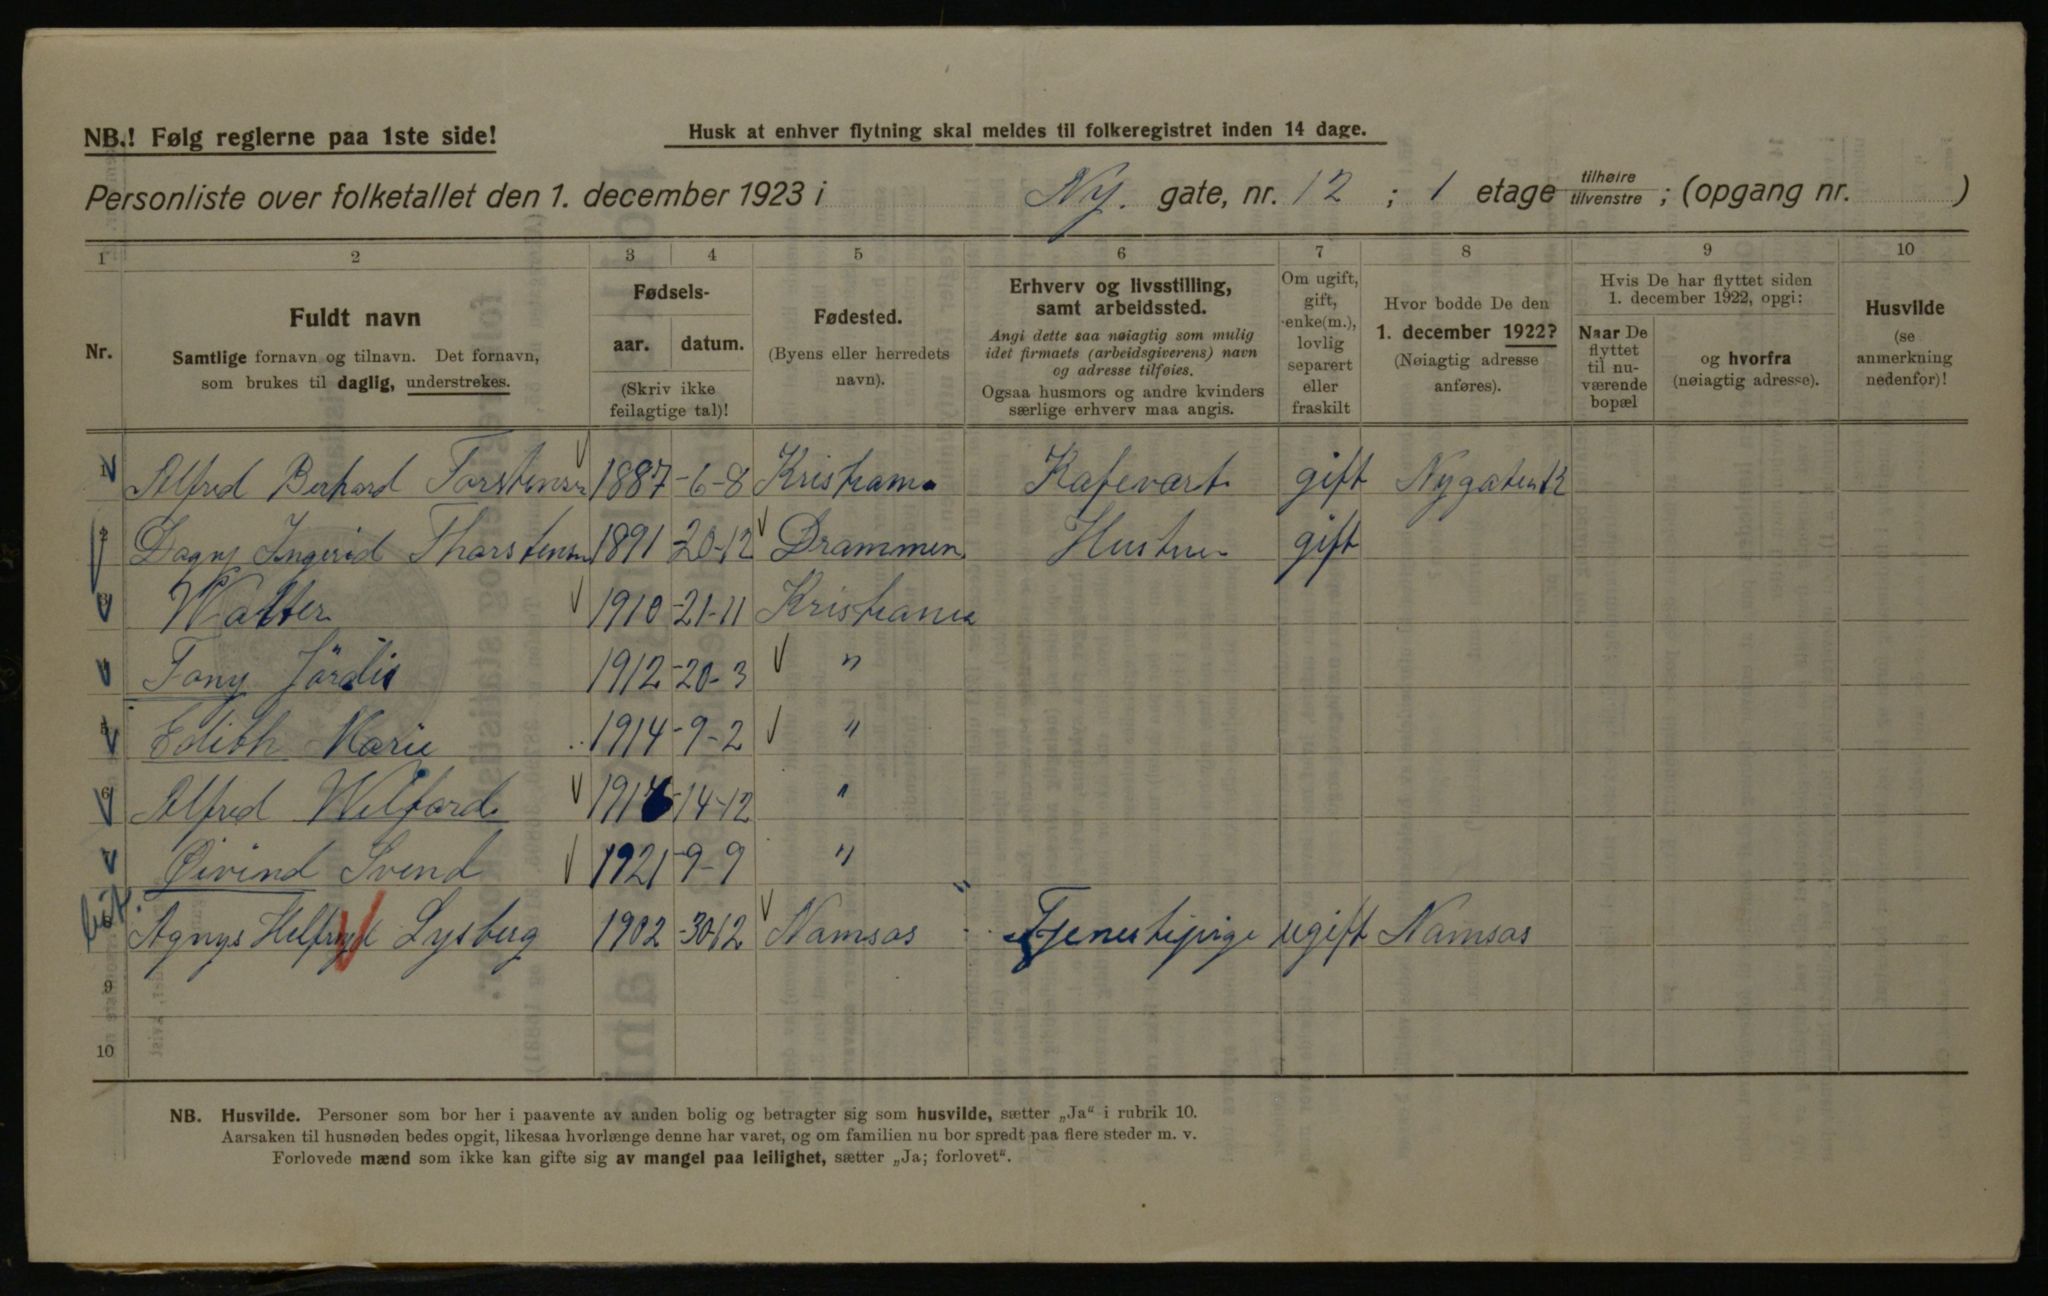 NB.! Følg reglerne paa 1ste side!
Husk at enhver flytning skal meldes til folkeregistret inden 14 dage.
Personliste over folketallet den 1. december 1923 i Ny. gate, nr. 12 ; 1 etage tilhøire/tilvenstre ; (opgang nr. )
1 2 3 4 5 6 7 8 9 10
Nr.
Fuldt navn
Samtlige fornavn og tilnavn. Det fornavn,
som brukes til daglig, understrekes.
Fødsels-
aar. datum.
(Skriv ikke
feilagtige tal)!
Fødested.
(Byens eller herredets
navn).
Erhverv og livsstilling,
samt arbeidssted.
Angi dette saa nøiagtig som mulig
idet firmaets (arbeidsgiverens) navn
og adresse tilføies.
Ogsaa husmors og andre kvinders
særlige erhverv maa angis.
Om ugift,
gift,
enke(m.),
lovlig
separert
eller
fraskilt
Hvor bodde De den
1. december 1922?
(Nøiagtig adresse
anføres).
Hvis De har flyttet siden
1. december 1922, opgi:
Naar De
flyttet
til nu-
værende
bopæl
og hvorfra
(nøiagtig adresse).
Husvilde
(se
anmerkning
nedenfor)!
1 Alfred Berhard Torstensen 1887 -6-8 Kristiania Kafevært gift Nygaten 12
2 Dagny Ingerid Thorstensen 1891 -20-12 Drammen Hustru gift
3 Walter 1910 -21-11 Kristiania
Tony Jördis 1912 -20-3 "
Edith Marie 1914 -9-2 "
6 Alfred Wilford 1916 -14-12 "
7 Øivind Svend 1921 -9-9 "
8 Agnys Helfryd Lysberg 1902 -30-12 Namsos Tjenestepige ugift Namsos
9
10
NB. Husvilde. Personer som bor her i paavente av anden bolig og betragter sig som husvilde, sætter „Ja“ i rubrik 10.
Aarsaken til husnøden bedes opgit, likesaa hvorlænge denne har varet, og om familien nu bor spredt paa flere steder m. v.
Forlovede mænd som ikke kan gifte sig av mangel paa leilighet, sætter „Ja; forlovet“.